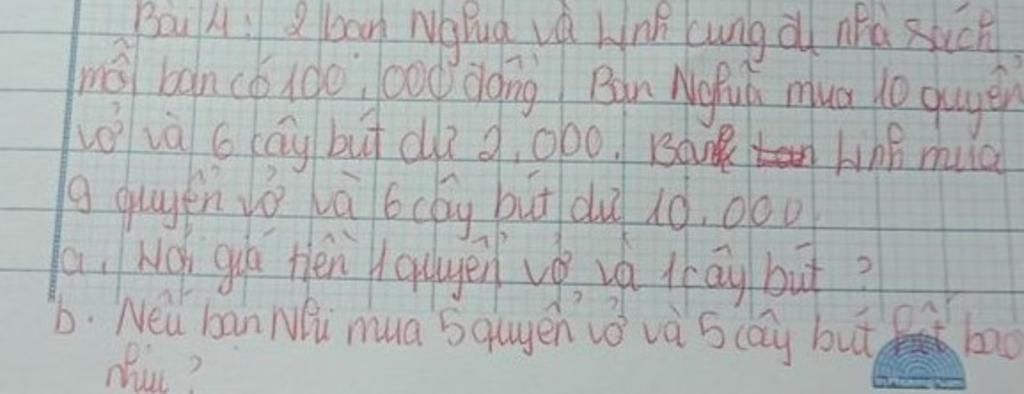 Bài 4: 2 bạn Nghĩa và Linh cùng đi nhà sách
mỗi bạn có 100.000 đồng Bạn Nghĩa mua 10 quyển
vở và 6 cây bút dư 2.000. Bạn Linh mua
9 quyển vở và 6 cây bút dư 10.000
a. Hỏi giá tiền 1 quyển vở và 1 cây bút ?
b. Nếu bạn Nhi mua 5 quyển vở và 5 cây bút hết bao
nhiu ?